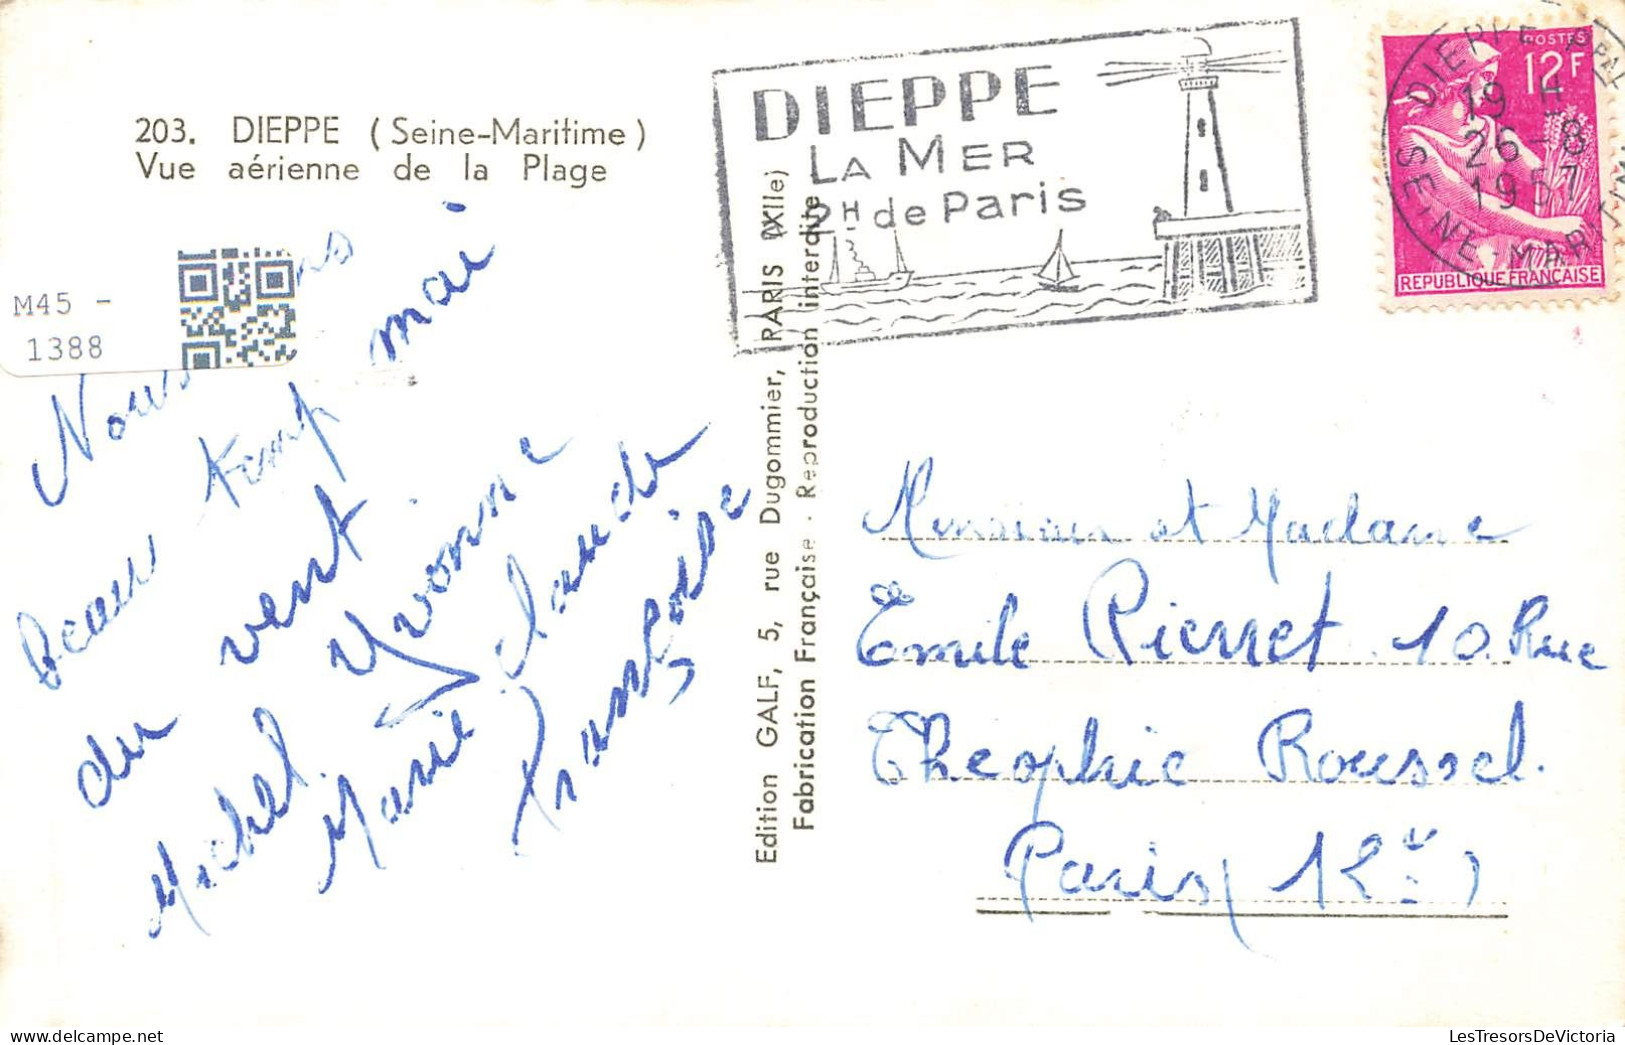 203. DIEPPE (Seine-Maritime)
Vue aérienne de la Plage
M45 -
1388
beau temp mai
du vent
Michel Yvonne
Marie Claude
Françoise
Edition GALF, 5, rue Dugommier, PARIS (XIIe)
Fabrication Française - Reproduction interdite
DIEPPE
LA MER
2H de Paris
POSTES
12F
REPUBLIQUE FRANÇAISE
DIEPPE PPAL
19 H
26-8
1957
SEINE-MARITIME
Monsieur et Madame
Emile Pierret 10 Rue
Theophie Roussel.
Paris (12e)
LesTresorsDeVictoria